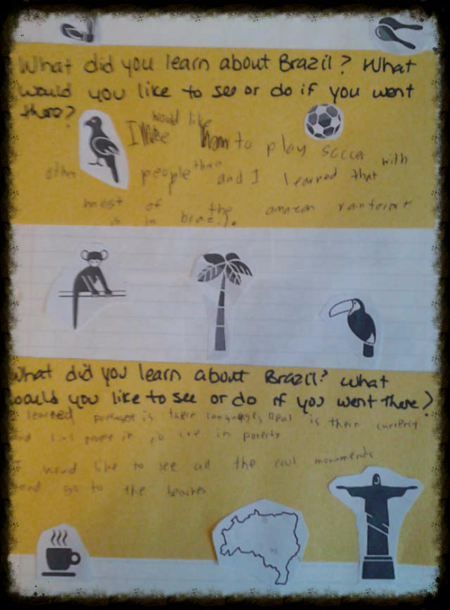 What did you learn about Brazil? What
would you like to see or do if you went
there?
would like
I to play soccer with
other people there and I learned that
most of the amazon rainforest
is in brazil.
What did you learn about Brazil? What
would you like to see or do if you went there?
I learned is their language, real is their currency
and in poverty
I would like to see all the cool monuments
and go to the beaches